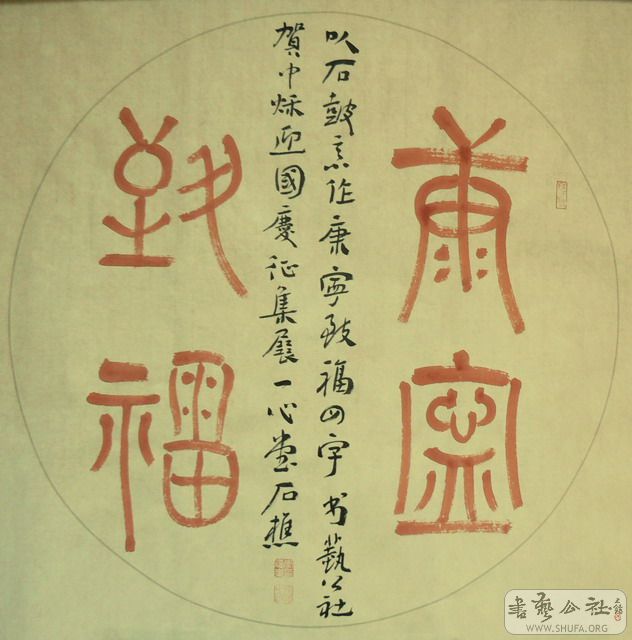 康寧
致福
以石鼓意作康寧致福四字 书藝公社
賀中秋迎國慶征集展 一心堂石樵
書藝公社
WWW.SHUFA.ORG